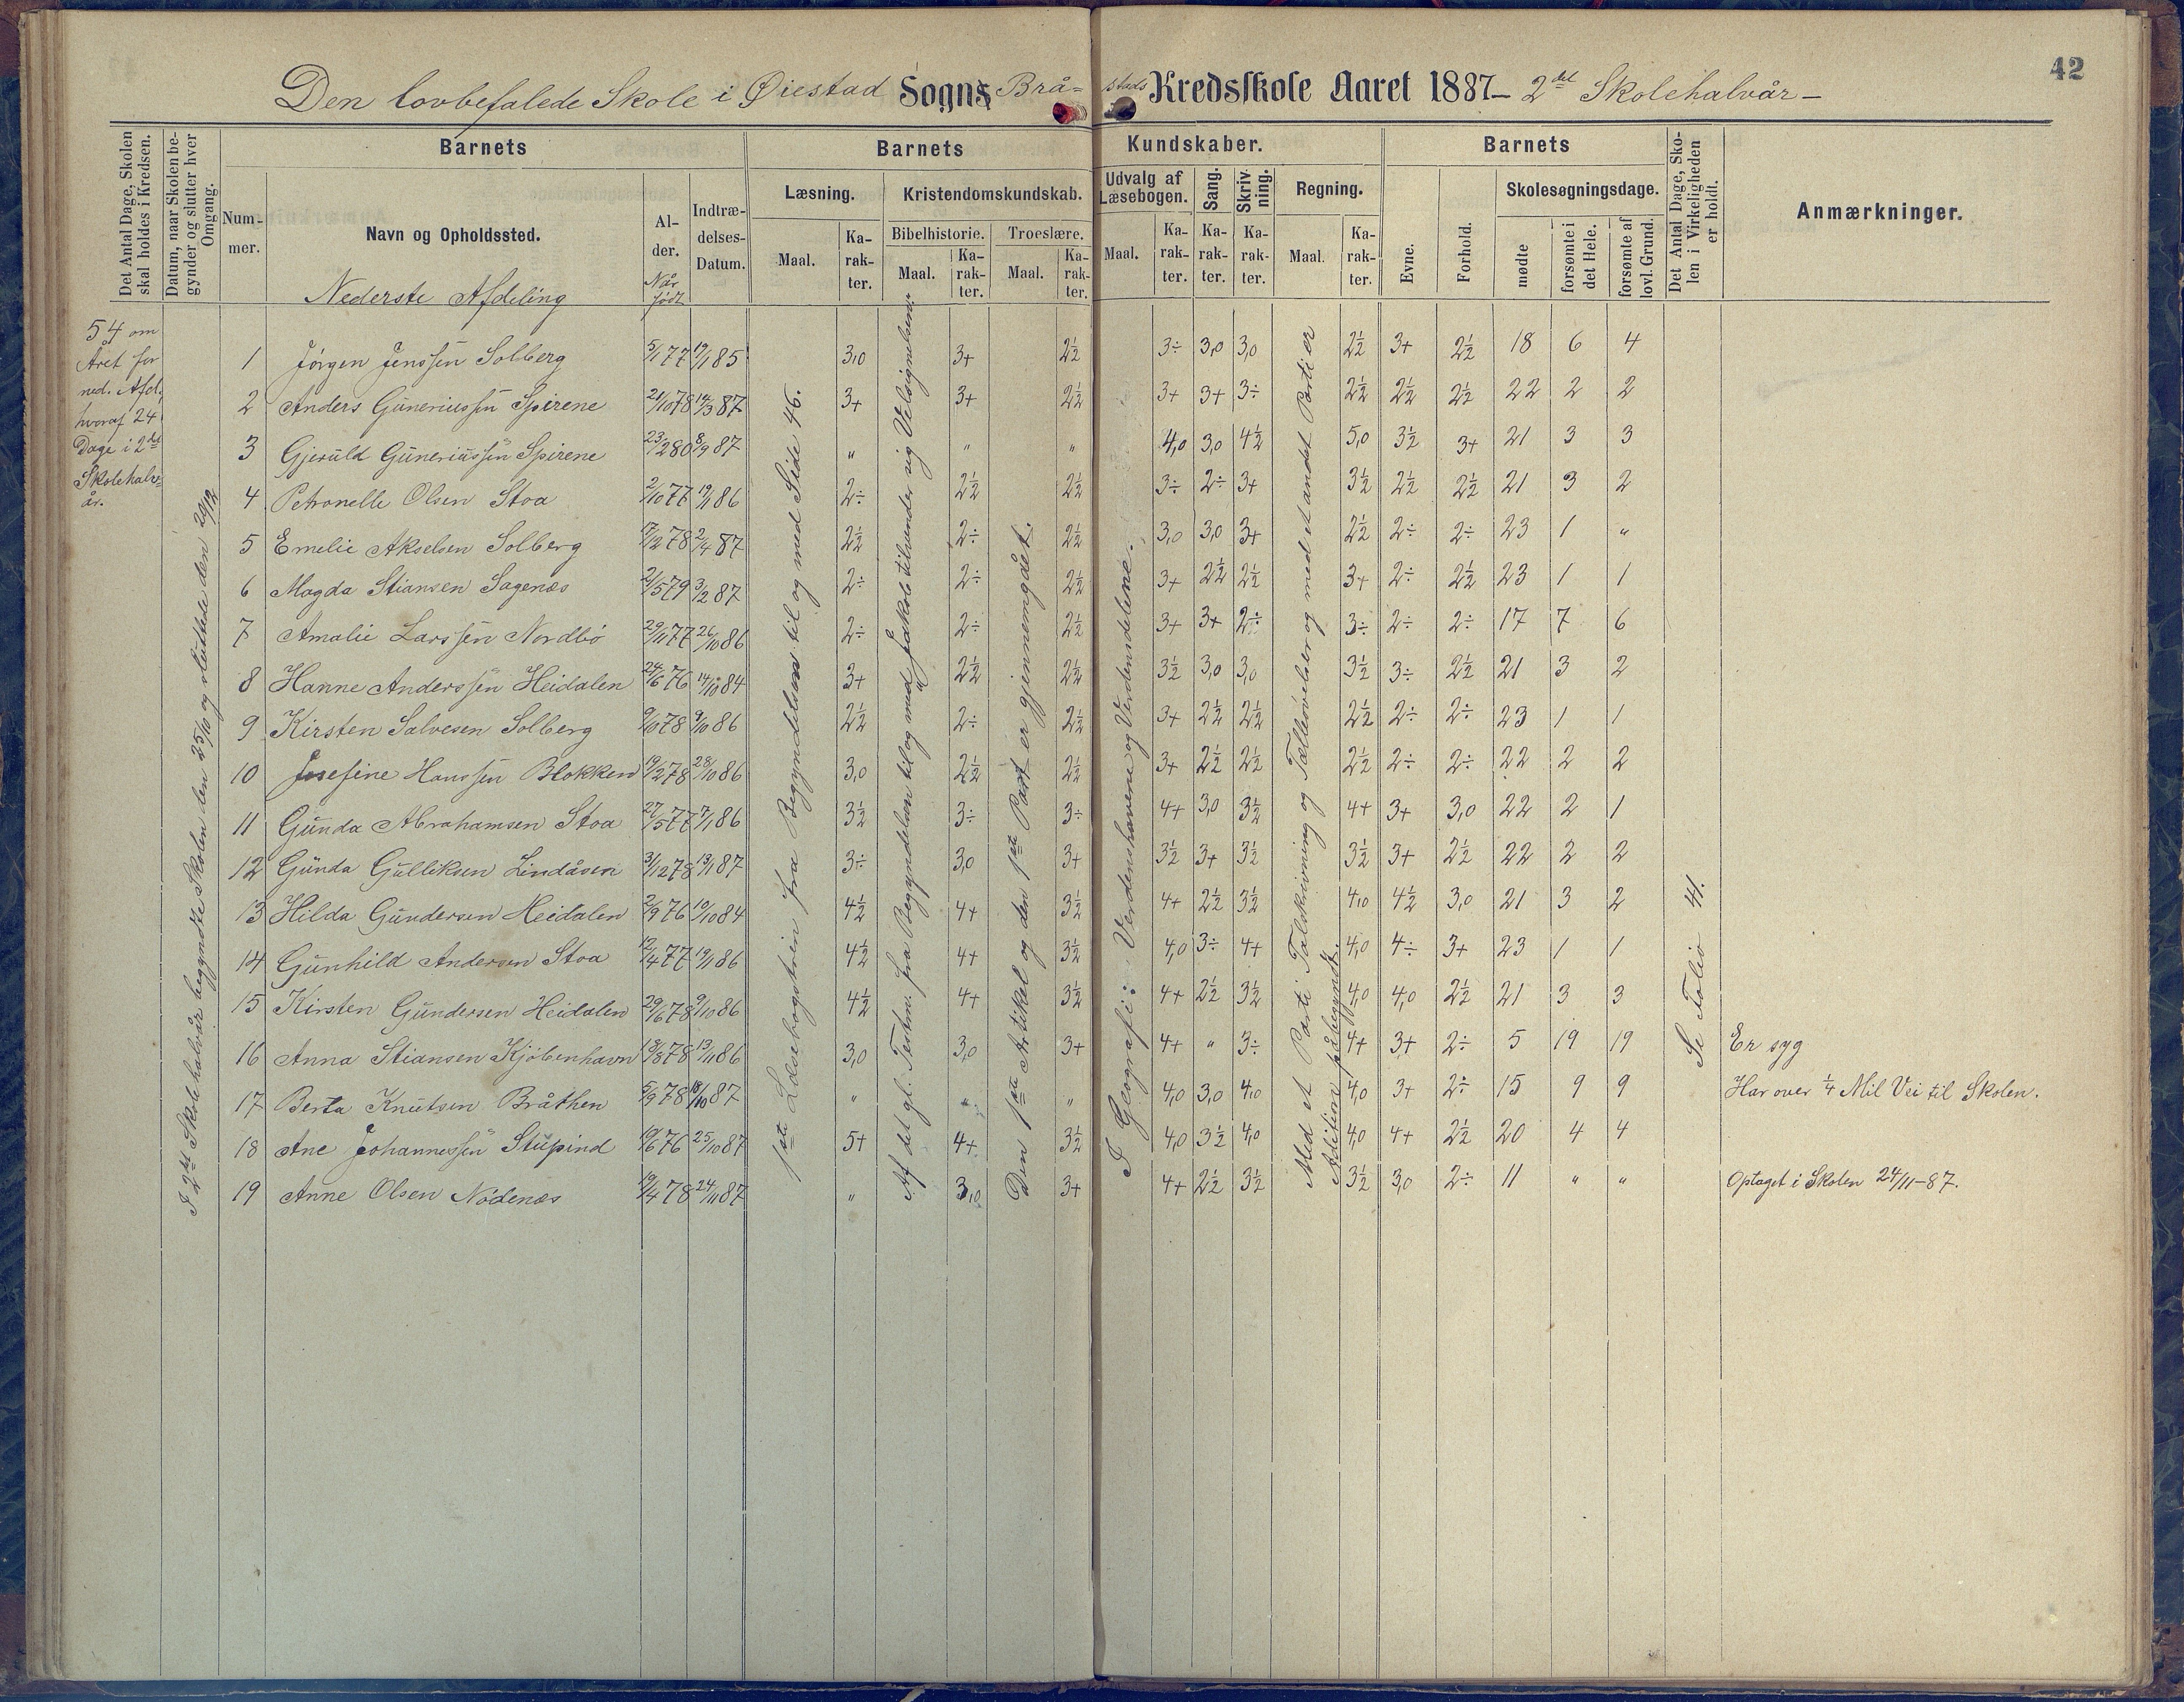 42
Den lovbefalede Skole i Øiestad Sogns Brå- stads Kredsskole Aaret 1887- 2det Skolehalvår-
Det Antal Dage, Skolen skal holdes i Kredsen.
Datum, naar Skolen begynder og slutter hver Omgang.
Barnets
Barnets
Kundskaber.
Barnets
Det Antal Dage, Skolen i Virkeligheden er holdt.
Anmærkninger.
Nummer.
Navn og Opholdssted.
Alder.
Når født
Indtrædelses-Datum.
Læsning.
Kristendomskundskab.
Udvalg af Læsebogen.
Sang.
Skrivning.
Regning.
Evne.
Forhold.
Skolesøgningsdage.
Bibelhistorie.
Troeslære.
Maal. Karakter. Maal. Karakter. Maal. Karakter. Maal. Karakter. Karakter. Karakter. Maal. Karakter.
mødte
forsømte i det Hele.
forsømte af lovl. Grund.
Nederste Afdeling
54 om
Året for
ned. Afd.,
hvoraf 24
Dage i 2det
Skolehalv-
år.
I 2det Skolehalvår begyndte Skolen den 25/10 og sluttede den 20/12
1ste Læsebogstrin fra Begyndelsen til og med Side 46.
Af det gl. Testm. fra Begyndelsen til og med "Jakob tilvender sig Velsignelsen".
Den 1ste Artikel og den 1ste Part er gjennemgået.
I Geografi: Verdenshavene og Verdensdelene.
Med et Parti Talskrivning og Tælleøvelser og med et andet Parti er
Adition påbegyndt.
Se Folio 41.
1 Jörgen Jenssen Solberg 5/1 77 19/1 85 3,0 3+ 2½ 3÷ 3,0 3,0 2½ 3+ 2½ 18 6 4
2 Anders Guneriussen Spirene 21/10 78 14/3 87 3+ 3+ 2½ 3+ 3+ 3÷ 2½ 2½ 2½ 22 2 2
3 Gjeruld Guneriussen Spirene 23/2 80 8/9 87 " " " 4,0 3,0 4½ 5,0 3½ 3+ 21 3 3
4 Petronelle Olsen Stoa 2/10 77 19/1 86 2÷ 2½ 2½ 3÷ 2÷ 3+ 3½ 2½ 2½ 21 3 2
5 Emelie Akselsen Solberg 17/12 78 2/4 87 2½ 2÷ 2½ 3,0 3,0 3+ 2½ 2÷ 2÷ 23 1 "
6 Magda Stiansen Sagenæs 21/5 79 3/2 87 2÷ 2÷ 2½ 3+ 2½ 2½ 3+ 2÷ 2½ 23 1 1
7 Amalie Larssen Nordbö 29/11 77 26/10 86 2÷ 2÷ 2½ 3+ 3+ 2÷ 3÷ 2÷ 2÷ 17 7 6
8 Hanne Anderssen Heidalen 24/6 76 14/10 84 3+ 2½ 2½ 3½ 3,0 3,0 3½ 3÷ 2½ 21 3 2
9 Kirsten Salvesen Solberg 9/10 78 9/10 86 2½ 2÷ 2½ 3+ 2½ 2½ 2½ 2÷ 2÷ 23 1 1
10 Josefine Hanssen Blokken 19/2 78 28/10 86 3,0 2½ 2½ 3+ 2½ 2½ 2½ 2÷ 2÷ 22 2 2
11 Gunda Abrahamsen Stoa 27/5 77 7/1 86 3½ 3÷ 3÷ 4+ 3,0 3½ 4+ 3+ 3,0 22 2 1
12 Gunda Gulliksen Lindåsen 31/12 78 13/1 87 3÷ 3,0 3+ 3½ 3+ 3½ 3½ 3+ 2½ 22 2 2
13 Hilda Gundersen Heidalen 2/9 76 10/10 84 4½ 4+ 3½ 4+ 2½ 3½ 4,0 4½ 3,0 21 3 2
14 Gunhild Andersen Stoa 12/4 77 19/1 86 4½ 4+ 3½ 4,0 3÷ 4+ 4,0 4÷ 3+ 23 1 1
15 Kirsten Gundersen Heidalen 29/6 78 9/10 86 4½ 4+ 3½ 4+ 2½ 3½ 4,0 4,0 2½ 21 3 3
16 Anna Stiansen Kjöbenhavn 13/3 78 13/11 86 3,0 3,0 3+ 4+ " 3÷ 4+ 3+ 2÷ 5 19 19 Er syg
17 Berta Knutsen Bråthen 5/9 78 18/10 87 " " " 4,0 3,0 4,0 4,0 3+ 2÷ 15 9 9 Har over ¼ Mil Vei til Skolen.
18 Ane Johannessen Stupind 19/6 76 25/10 87 5+ 4+ 3½ 4,0 3½ 4,0 4,0 4+ 2½ 20 4 4
19 Anne Olsen Nödenæs 19/4 78 24/11 87 " 3,0 3+ 4+ 2½ 3½ 3½ 3,0 2÷ 11 " " Optaget i Skolen 24/11-87.